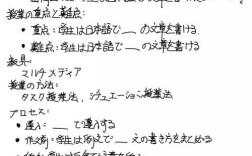 授業の重点と難点:
• 重点: 学生は日本語で __ の文章を書ける.
• 難点: 学生は日本語で __ の文章を書ける
教具:
マルチメディア
授業の方法:
タスク授業法, シチュエーション授業法
プロセス:
• 導入: __ で導入する
• 作文前: 学生は例えで __ 文の書き方をまとめる